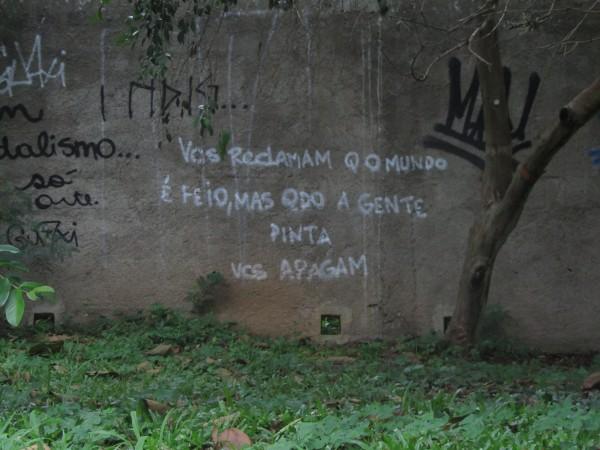 MAU
INDIS...
dalismo...
só
arte.
Vcs ReclAMAM Q O MUNDO
É FEIO, MAS QDO A GENTE
PINTA
vcs APAGAM